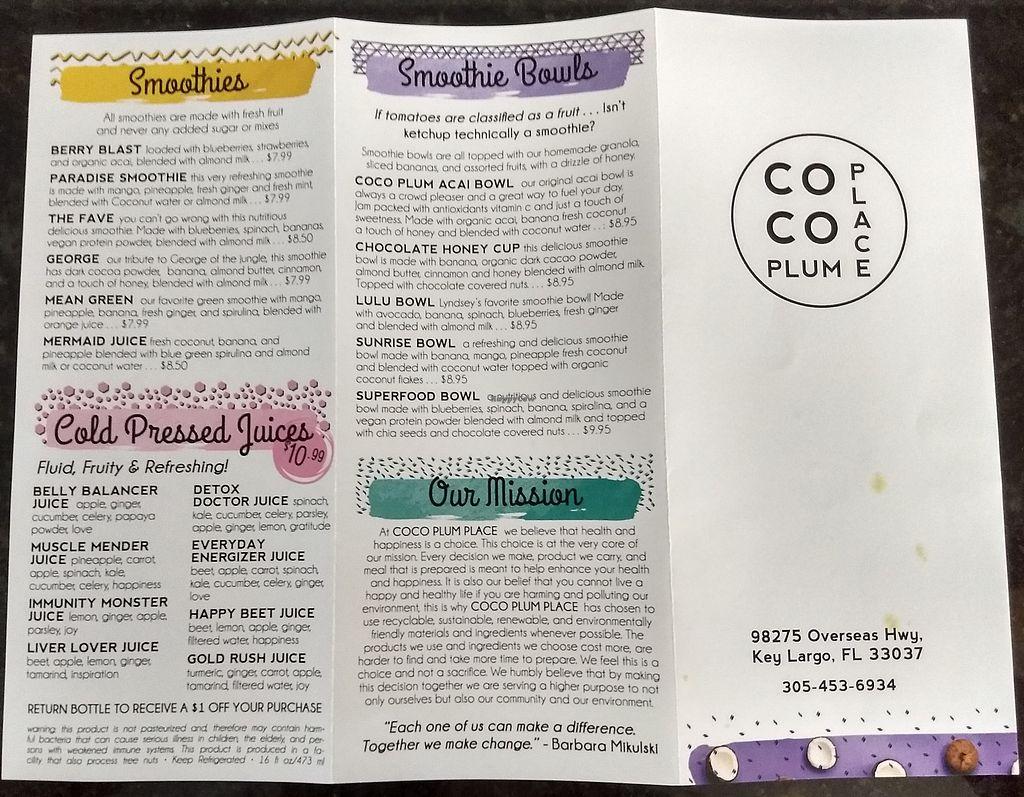 Smoothies
All smoothies are made with fresh fruit
and never any added sugar or mixes
BERRY BLAST loaded with blueberries, strawberries,
and organic acai, blended with almond milk . . . $7.99
PARADISE SMOOTHIE this very refreshing smoothie
is made with mango, pineapple, fresh ginger and fresh mint,
blended with Coconut water or almond milk . . . $7.99
THE FAVE you can't go wrong with this nutritious
delicious smoothie. Made with blueberries, spinach, bananas,
vegan protein powder, blended with almond milk . . . $8.50
GEORGE our tribute to George of the jungle, this smoothie
has dark cocoa powder, banana, almond butter, cinnamon,
and a touch of honey, blended with almond milk . . . $7.99
MEAN GREEN our favorite green smoothie with mango,
pineapple, banana, fresh ginger, and spirulina, blended with
orange juice . . . $7.99
MERMAID JUICE fresh coconut, banana, and
pineapple blended with blue green spirulina and almond
milk or coconut water . . . $8.50
Cold Pressed Juices
$10.99
Fluid, Fruity & Refreshing!
BELLY BALANCER
JUICE apple, ginger,
cucumber, celery, papaya
powder, love
MUSCLE MENDER
JUICE pineapple, carrot,
apple, spinach, kale,
cucumber, celery, happiness
IMMUNITY MONSTER
JUICE lemon, ginger, apple,
parsley, joy
LIVER LOVER JUICE
beet, apple, lemon, ginger,
tamarind, inspiration
DETOX
DOCTOR JUICE spinach,
kale, cucumber, celery, parsley,
apple, ginger, lemon, gratitude
EVERYDAY
ENERGIZER JUICE
beet, apple, carrot, spinach,
kale, cucumber, celery, ginger,
love
HAPPY BEET JUICE
beet, lemon, apple, ginger,
filtered water, happiness
GOLD RUSH JUICE
turmeric, ginger, carrot, apple,
tamarind, filtered water, joy
RETURN BOTTLE TO RECEIVE A $1 OFF YOUR PURCHASE
warning: this product is not pasteurized and, therefore may contain harm-
ful bacteria that can cause serious illness in children, the elderly, and per-
sons with weakened immune systems. This product is produced in a fa-
cility that also process tree nuts • Keep Refrigerated • 16 fl oz/473 ml
Smoothie Bowls
If tomatoes are classified as a fruit . . . Isn't
ketchup technically a smoothie?
Smoothie bowls are all topped with our homemade granola,
sliced bananas, and assorted fruits, with a drizzle of honey.
COCO PLUM ACAI BOWL our original acai bowl is
always a crowd pleaser and a great way to fuel your day.
Jam packed with antioxidants vitamin c and just a touch of
sweetness. Made with organic acai, banana fresh coconut
a touch of honey and blended with coconut water . . . $8.95
CHOCOLATE HONEY CUP this delicious smoothie
bowl is made with banana, organic dark cacao powder,
almond butter, cinnamon and honey blended with almond milk.
Topped with chocolate covered nuts. . . . $8.95
LULU BOWL Lyndsey's favorite smoothie bowl! Made
with avocado, banana, spinach, blueberries, fresh ginger
and blended with almond milk . . . $8.95
SUNRISE BOWL a refreshing and delicious smoothie
bowl made with banana, mango, pineapple fresh coconut
and blended with coconut water topped with organic
coconut flakes . . . $8.95
SUPERFOOD BOWL a nutritious and delicious smoothie
bowl made with blueberries, spinach, banana, spiralina, and a
vegan protein powder blended with almond milk and topped
with chia seeds and chocolate covered nuts . . . $9.95
Our Mission
At COCO PLUM PLACE we believe that health and
happiness is a choice. This choice is at the very core of
our mission. Every decision we make, product we carry, and
meal that is prepared is meant to help enhance your health
and happiness. It is also our belief that you cannot live a
happy and healthy life if you are harming and polluting our
environment, this is why COCO PLUM PLACE has chosen to
use recyclable, sustainable, renewable, and environmentally
friendly materials and ingredients whenever possible. The
products we use and ingredients we choose cost more, are
harder to find and take more time to prepare. We feel this is a
choice and not a sacrifice. We humbly believe that by making
this decision together we are serving a higher purpose to not
only ourselves but also our community and our environment.
"Each one of us can make a difference.
Together we make change." - Barbara Mikulski
COCO PLUM
PLACE
98275 Overseas Hwy,
Key Largo, FL 33037
305-453-6934